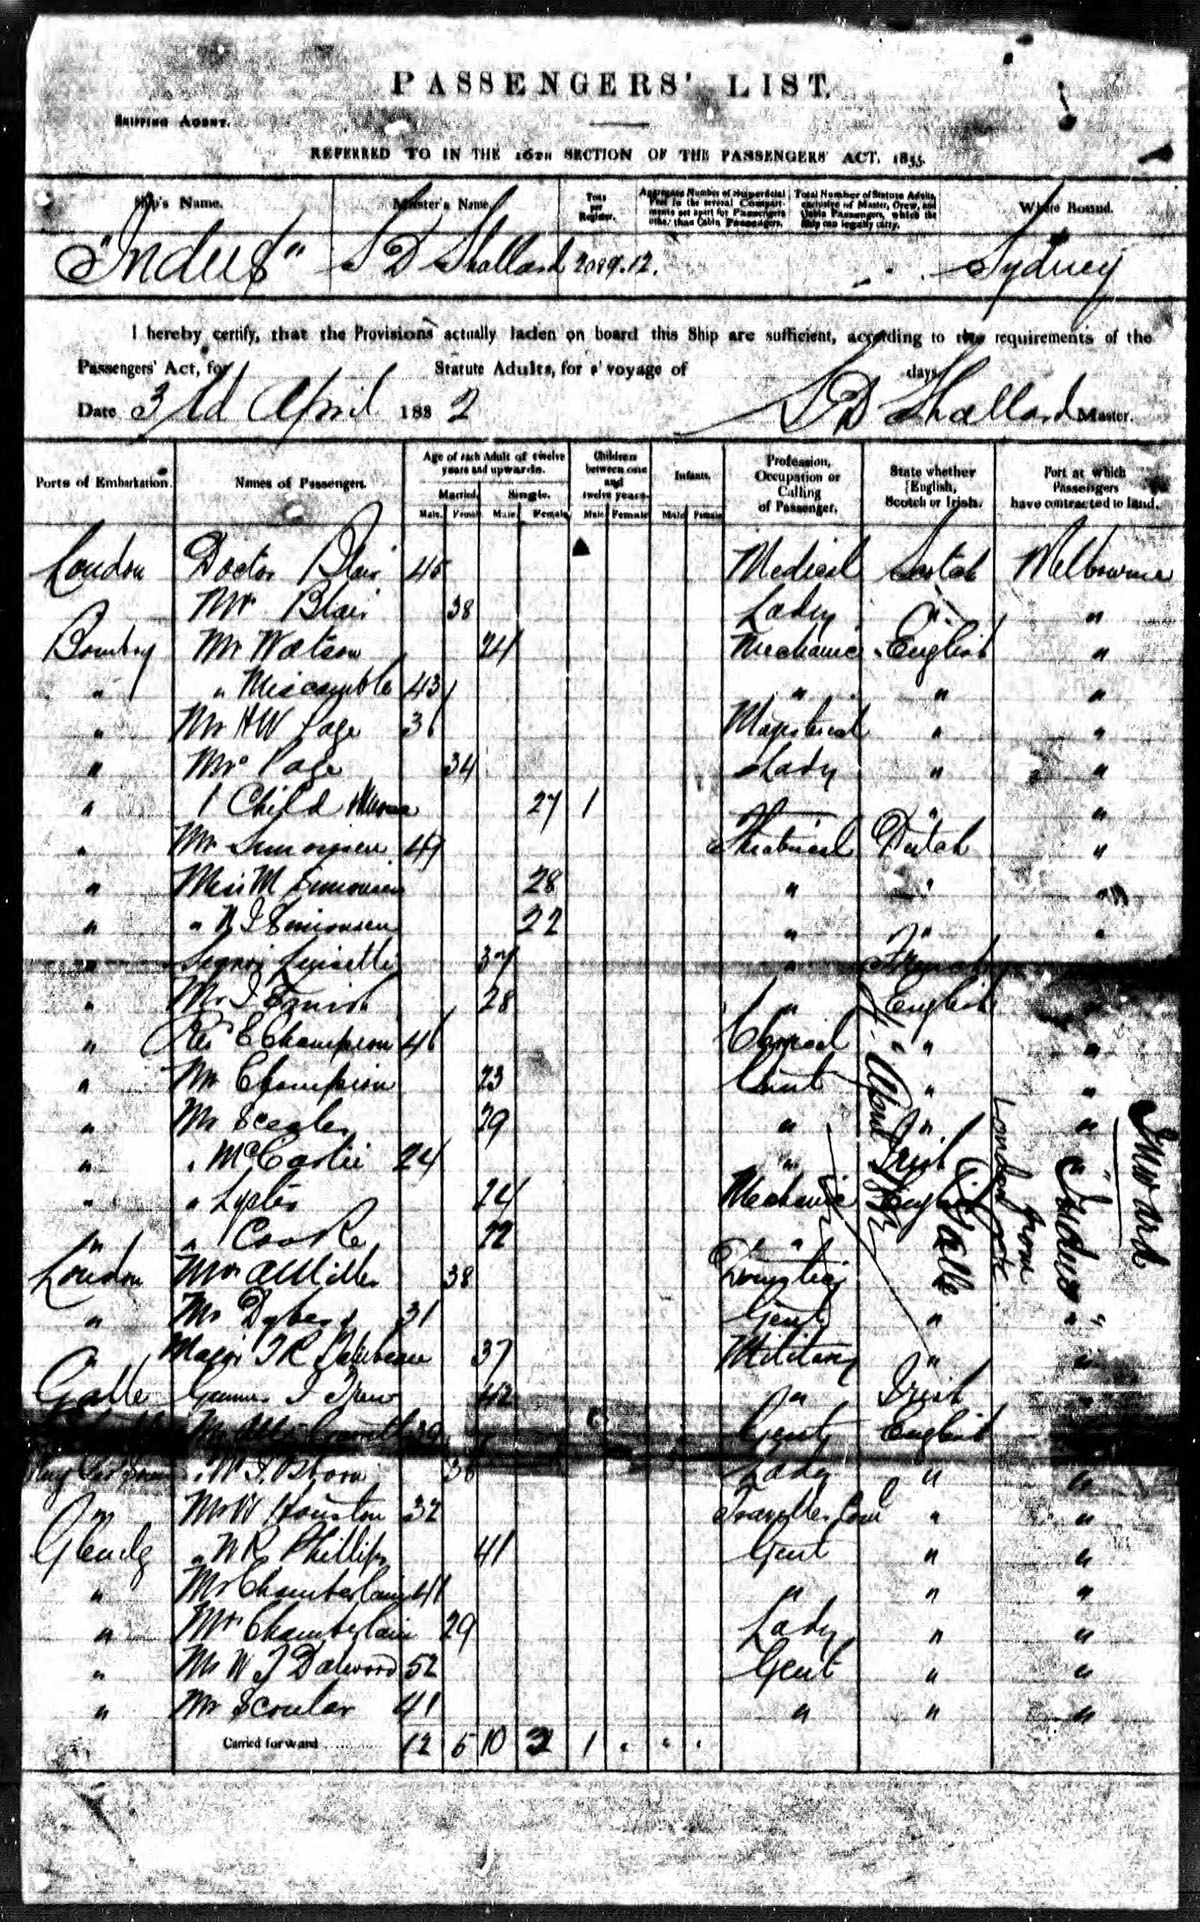 PASSENGERS' LIST.
SHIPPING AGENT.
REFERRED TO IN THE 16TH SECTION OF THE PASSENGERS' ACT, 1855.
Ship's Name. Master's Name. Tons per Register. Aggregate Number of Superficial Feet in the several Compartments set apart for Passengers other than Cabin Passengers. Total Number of Statute Adults, exclusive of Master, Crew, and Cabin Passengers, which the Ship can legally carry. Where Bound.
"Indus" S D Shallard 2089.12. Sydney
I hereby certify, that the Provisions actually laden on board this Ship are sufficient, according to the requirements of the
Passengers' Act, for Statute Adults, for a voyage of days
Date 3rd April 1882 S D Shallard Master.
Ports of Embarkation. Names of Passengers. Age of each Adult of twelve years and upwards. Children between one and twelve years. Infants. Profession, Occupation or Calling of Passenger. State whether English, Scotch or Irish. Port at which Passengers have contracted to land.
Married. Single.
Male. Female. Male. Female. Male Female Male Female
London Doctor Blair 45 Medical Scotch Melbourne
Mrs Blair 38 Lady " "
Bombay Mr Watson 24 Mechanic English "
" " Miscamble 43 " " "
" Mr H W Page 36 " "
" Mrs Page 34 Lady " "
" 1 Child & Nurse 27 1 " "
" Mr Simonsen 49 Theatrical Dutch "
" Miss M Simonsen 28 " " "
" " Simonsen 22 " " "
" Signor 37 " French
" Mr 28 " English
" Rev E Champion 46 Clerical " "
" Mr Champion 23 Gent " "
" Mr 29 " " "
" " McCartie 24 " Irish "
" " 24 Mechanic English
" " Cooke 22 "
London Mrs A Miller 38 Domestic
" Mr 31 Gent " "
" Major T R 37 Military " "
Galle Gunner 42 " Irish "
Mr 39 Gent English
Osborn 36 Lady " "
" Mr W Houston 32 Traveller Coml " "
Glenelg " W R Phillips 41 Gent " "
" Mr Chamberlain 41 " " "
" Mrs Chamberlain 29 Lady " "
" Mr W J Dalwood 52 Gent " "
" Mr Scoular 41 " " "
Carried forward 12 1 " " "
Inward
"Indus"
from
London
Galle